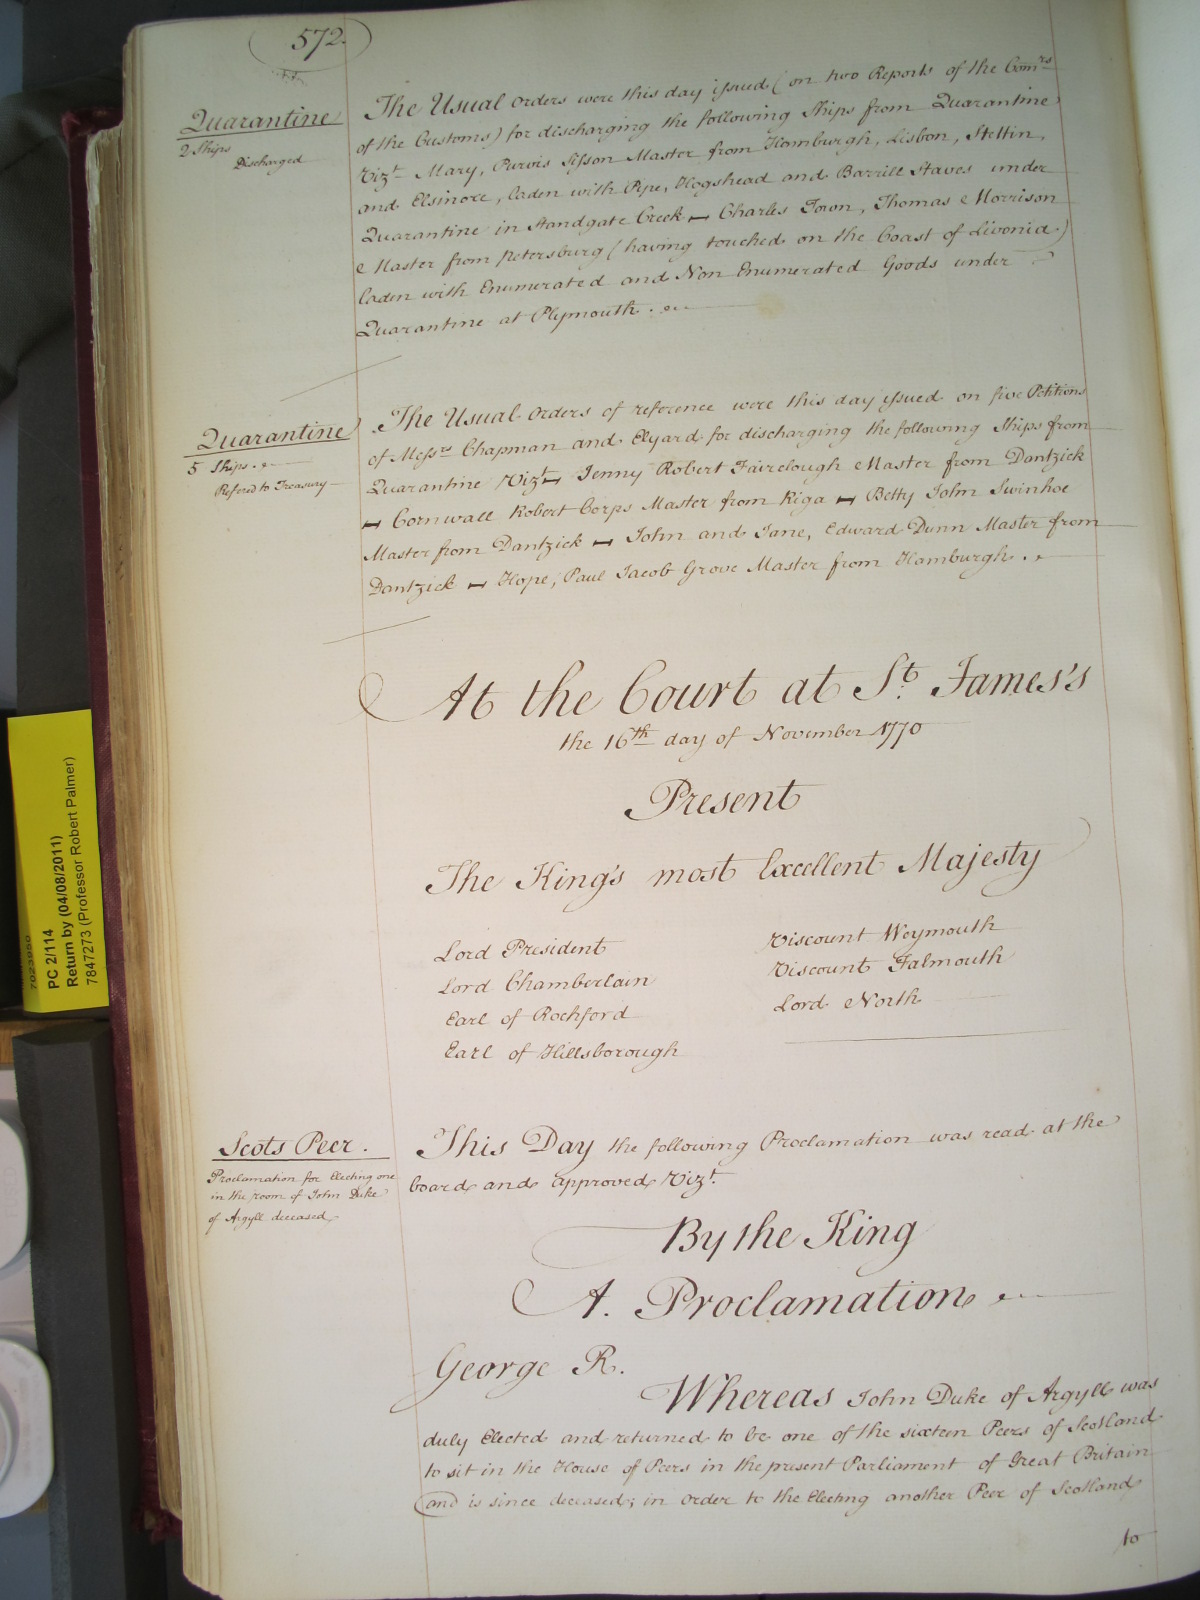 572.
Quarantine
2 Ships
Discharged
The Usual Orders were this day issued (on two Reports of the Comrs
of the Customs) for discharging the following Ships from Quarantine
Vizt. Mary, Purvis Sisson Master from Hamburgh, Lisbon, Stettin,
and Elsinore, laden with Pipe, Hogshead and Barrill Staves under
Quarantine in Standgate Creek — Charles Town, Thomas Morrison
Master from Petersburg (having touched on the Coast of Livonia)
laden with Enumerated and Non Enumerated Goods under
Quarantine at Plymouth.
Quarantine
5 Ships.
Refered to Treasury
The Usual Orders of reference were this day issued on five Petitions
of Messrs Chapman and Elyard for discharging the following Ships from
Quarantine Vizt — Jenny Robert Fairclough Master from Dantzick
— Cornwall Robert Corps Master from Riga — Betty John Swinhoe
Master from Dantzick — John and Jane, Edward Dunn Master from
Dantzick — Hope, Paul Jacob Grove Master from Hamburgh.
At the Court at St. James's
the 16th day of November 1770
Present
The King's most Excellent Majesty
Lord President
Lord Chamberlain
Earl of Rochford
Earl of Hillsborough
Viscount Weymouth
Viscount Falmouth
Lord North
Scots Peer.
Proclamation for Electing one
in the room of John Duke
of Argyll deceased
This Day the following Proclamation was read at the
board and approved Vizt.
By the King
A. Proclamation
George R.
Whereas John Duke of Argyll was
duly Elected and returned to be one of the sixteen Peers of Scotland
to sit in the House of Peers in the present Parliament of Great Britain
and is since deceased; in order to the Electing another Peer of Scotland
to
PC 2/114
Return by (04/08/2011)
7847273 (Professor Robert Palmer)